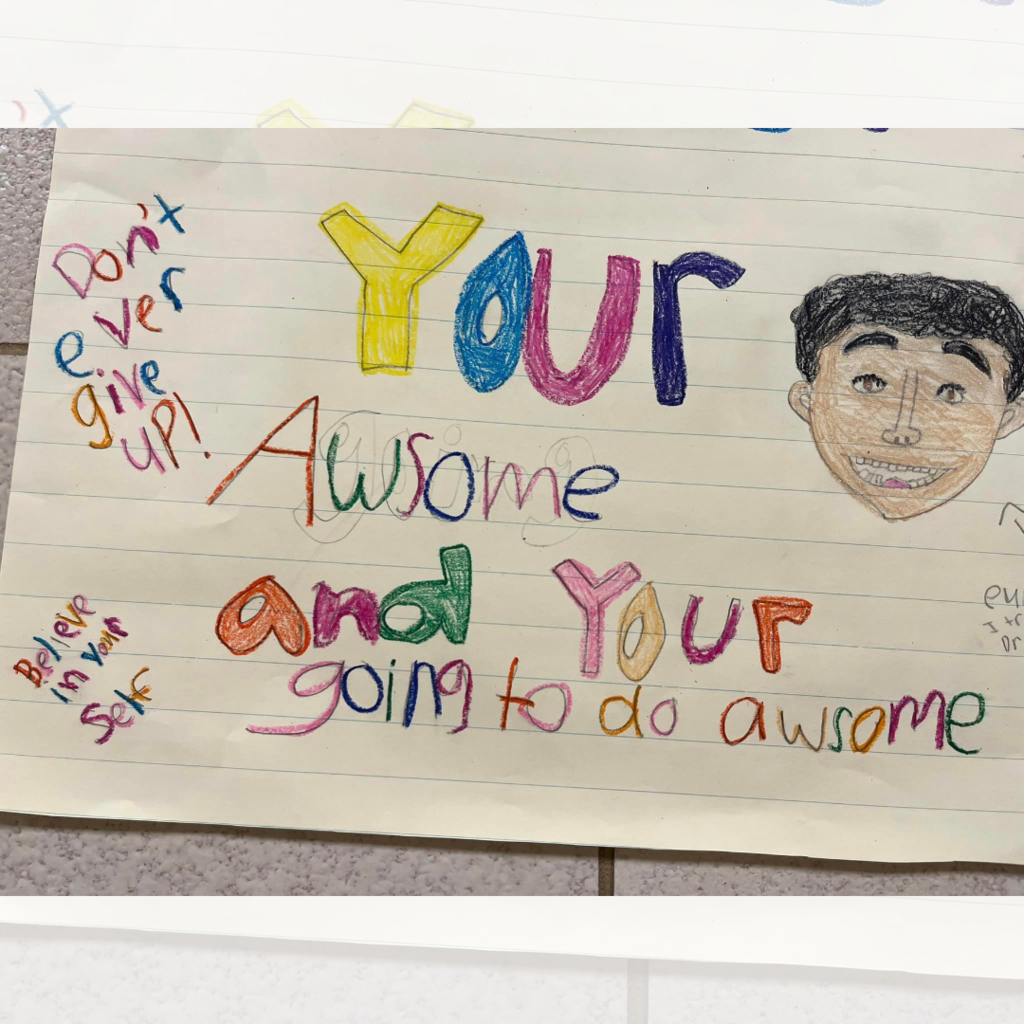 Don't
ever
give
UP!
Your
Awsome
and Your
going to do awsome
Believe
in your
Self